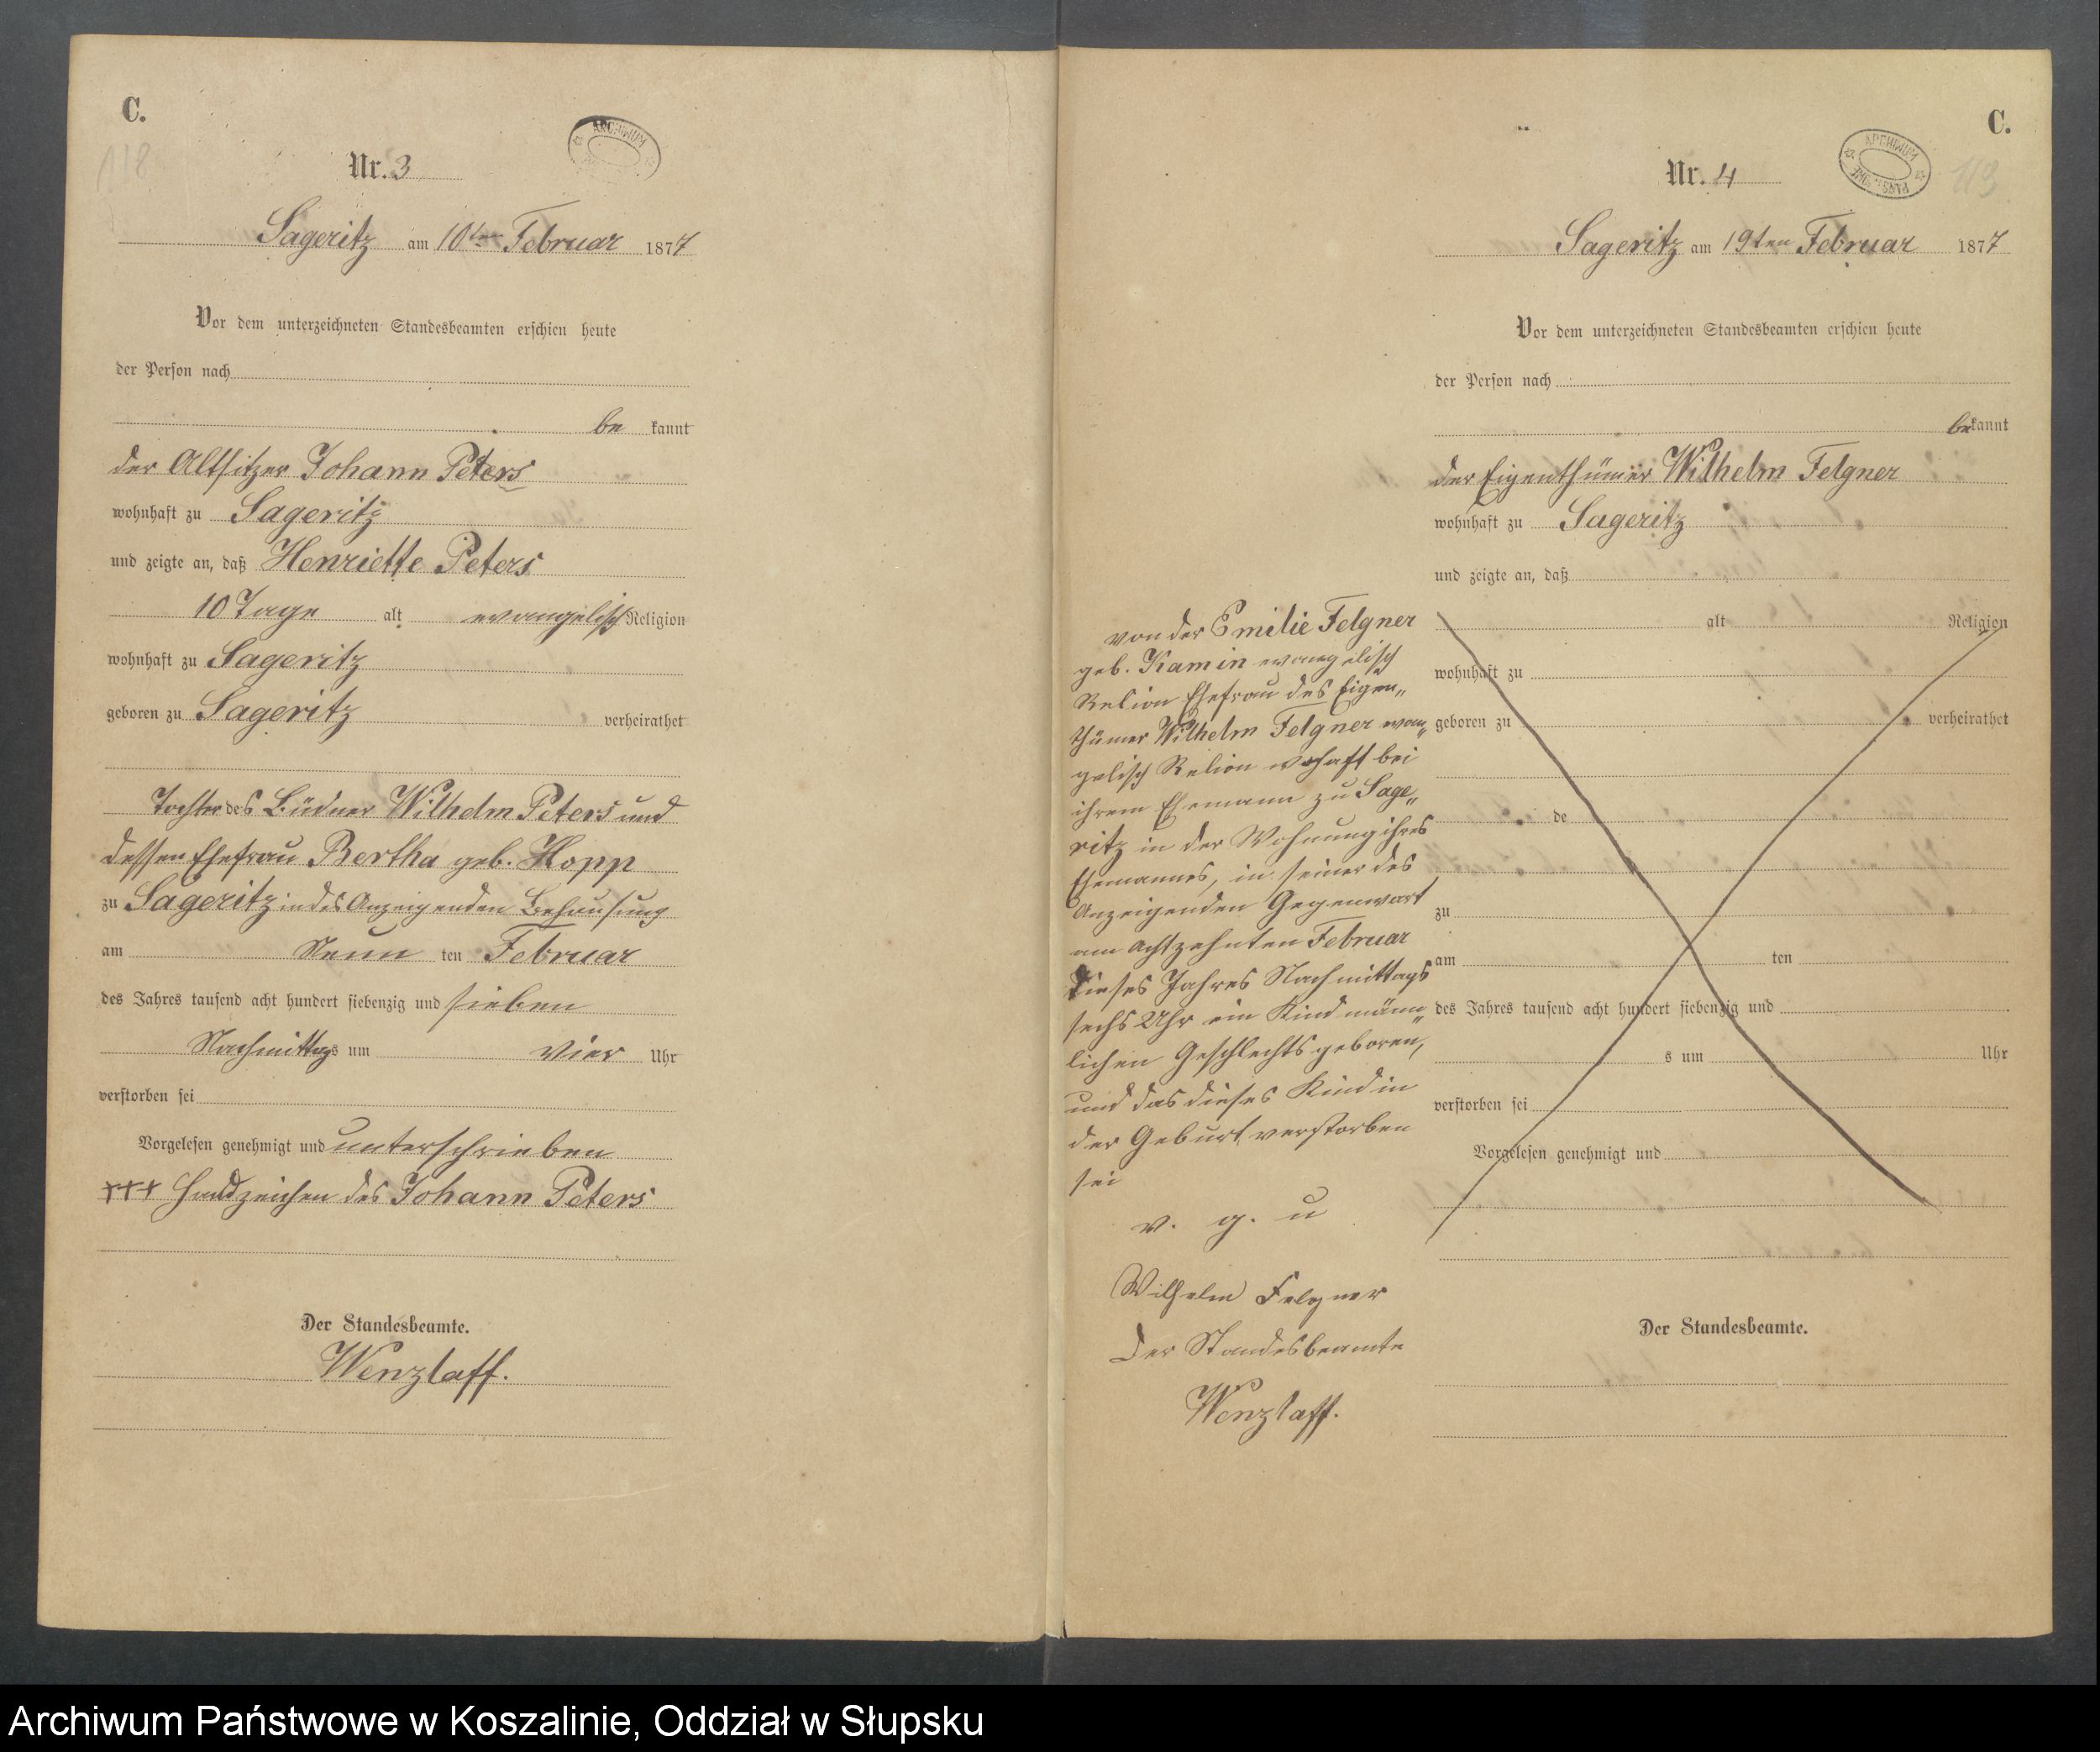 C.
118
Nr. 3
ARCHIWUM
Sageritz am 10ten Februar 1877
Vor dem unterzeichneten Standesbeamten erschien heute
der Person nach
be kannt
der Altsitzer Johann Peters
wohnhaft zu Sageritz
und zeigte an, daß Henriette Peters
10 Tage alt evangelisch Religion
wohnhaft zu Sageritz
geboren zu Sageritz verheirathet
Tochter des Büdner Wilhelm Peters und
dessen Ehefrau Bertha geb. Hopp
zu Sageritz in des Anzeigenden Behausung
am Neun ten Februar
des Jahres tausend acht hundert siebenzig und sieben
Nachmittags um vier Uhr
verstorben sei
Vorgelesen genehmigt und unterschrieben
+++ Handzeichen des Johann Peters
Der Standesbeamte.
Wenzlaff.
C.
119
Nr. 4
ARCHIWUM
Sageritz am 19ten Februar 1877
Vor dem unterzeichneten Standesbeamten erschien heute
der Person nach
bekannt
der Eigenthümer Wilhelm Felgner
wohnhaft zu Sageritz
und zeigte an, daß
alt Religion
wohnhaft zu
geboren zu verheirathet
de
zu
am ten
des Jahres tausend acht hundert siebenzig und
s um Uhr
verstorben sei
Vorgelesen genehmigt und
Der Standesbeamte.
von der Emilie Felgner
geb. Kamin evangelisch
Relion Ehefrau des Eigen„
thümer Wilhelm Felgner evan„
gelisch Relion wohaft bei
ihrem Ehemann zu Sage„
ritz in der Wohnung ihres
Ehemannes, in seiner des
Anzeigenden Gegenwart
am Achtzehnten Februar
dieses Jahres Nachmittags
sechs Uhr ein Kind männ„
lichen Geschlechts geboren,
und das dieses Kind in
der Geburt verstorben
sei
v. g. u
Wilhelm Felgner
Der Standesbeamte
Wenzlaff.
Archiwum Państwowe w Koszalinie, Oddział w Słupsku